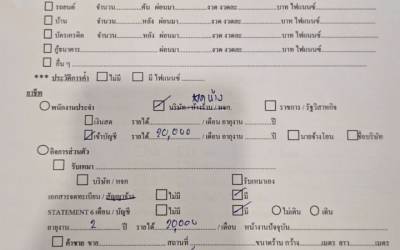 ☐ รถยนต์ จำนวน..........คัน ผ่อนมา..........งวด งวดละ..........บาท ไฟแนนซ์..........
☐ บ้าน จำนวน..........หลัง ผ่อนมา..........งวด งวดละ..........บาท ไฟแนนซ์..........
☐ บัตรเครดิต จำนวน..........ใบ ผ่อนมา..........งวด งวดละ..........บาท ไฟแนนซ์..........
☐ กู้ธนาคาร..........ผ่อนมา..........งวด งวดละ..........บาท ไฟแนนซ์..........
☐ อื่น ๆ
*** ประวัติการค้ำ ☐ ไม่มี ☐ มี ไฟแนนซ์..........
อาชีพ
○ พนักงานประจำ ☑ บริษัท / ห้างร้าน / หจก. ☐ ราชการ / รัฐวิสาหกิจ
☐ เงินสด รายได้........../ เดือน อายุงาน..........ปี
☑ เข้าบัญชี รายได้ 20,000 / เดือน อายุงาน..........ปี ☐ นายจ้างโอน ☐ ชื่อบริษัท
○ กิจการส่วนตัว
☐ รับเหมา
☐ บริษัท / หจก ☐ รับเหมาเอง
เอกสารจดทะเบียน / สัญญาจ้าง ☐ ไม่มี ☑ มี
STATEMENT 6 เดือน / บัญชี ☐ ไม่มี ☑ มี ☐ ไม่เดิน ☐ เดิน
อายุงาน 2 ปี รายได้ 20,000 / เดือน หน้างานปัจจุบัน..........
☐ ค้าขาย ขาย..........สถานที่..........ขนาดร้าน กว้าง..........เมตร ยาว..........เมตร